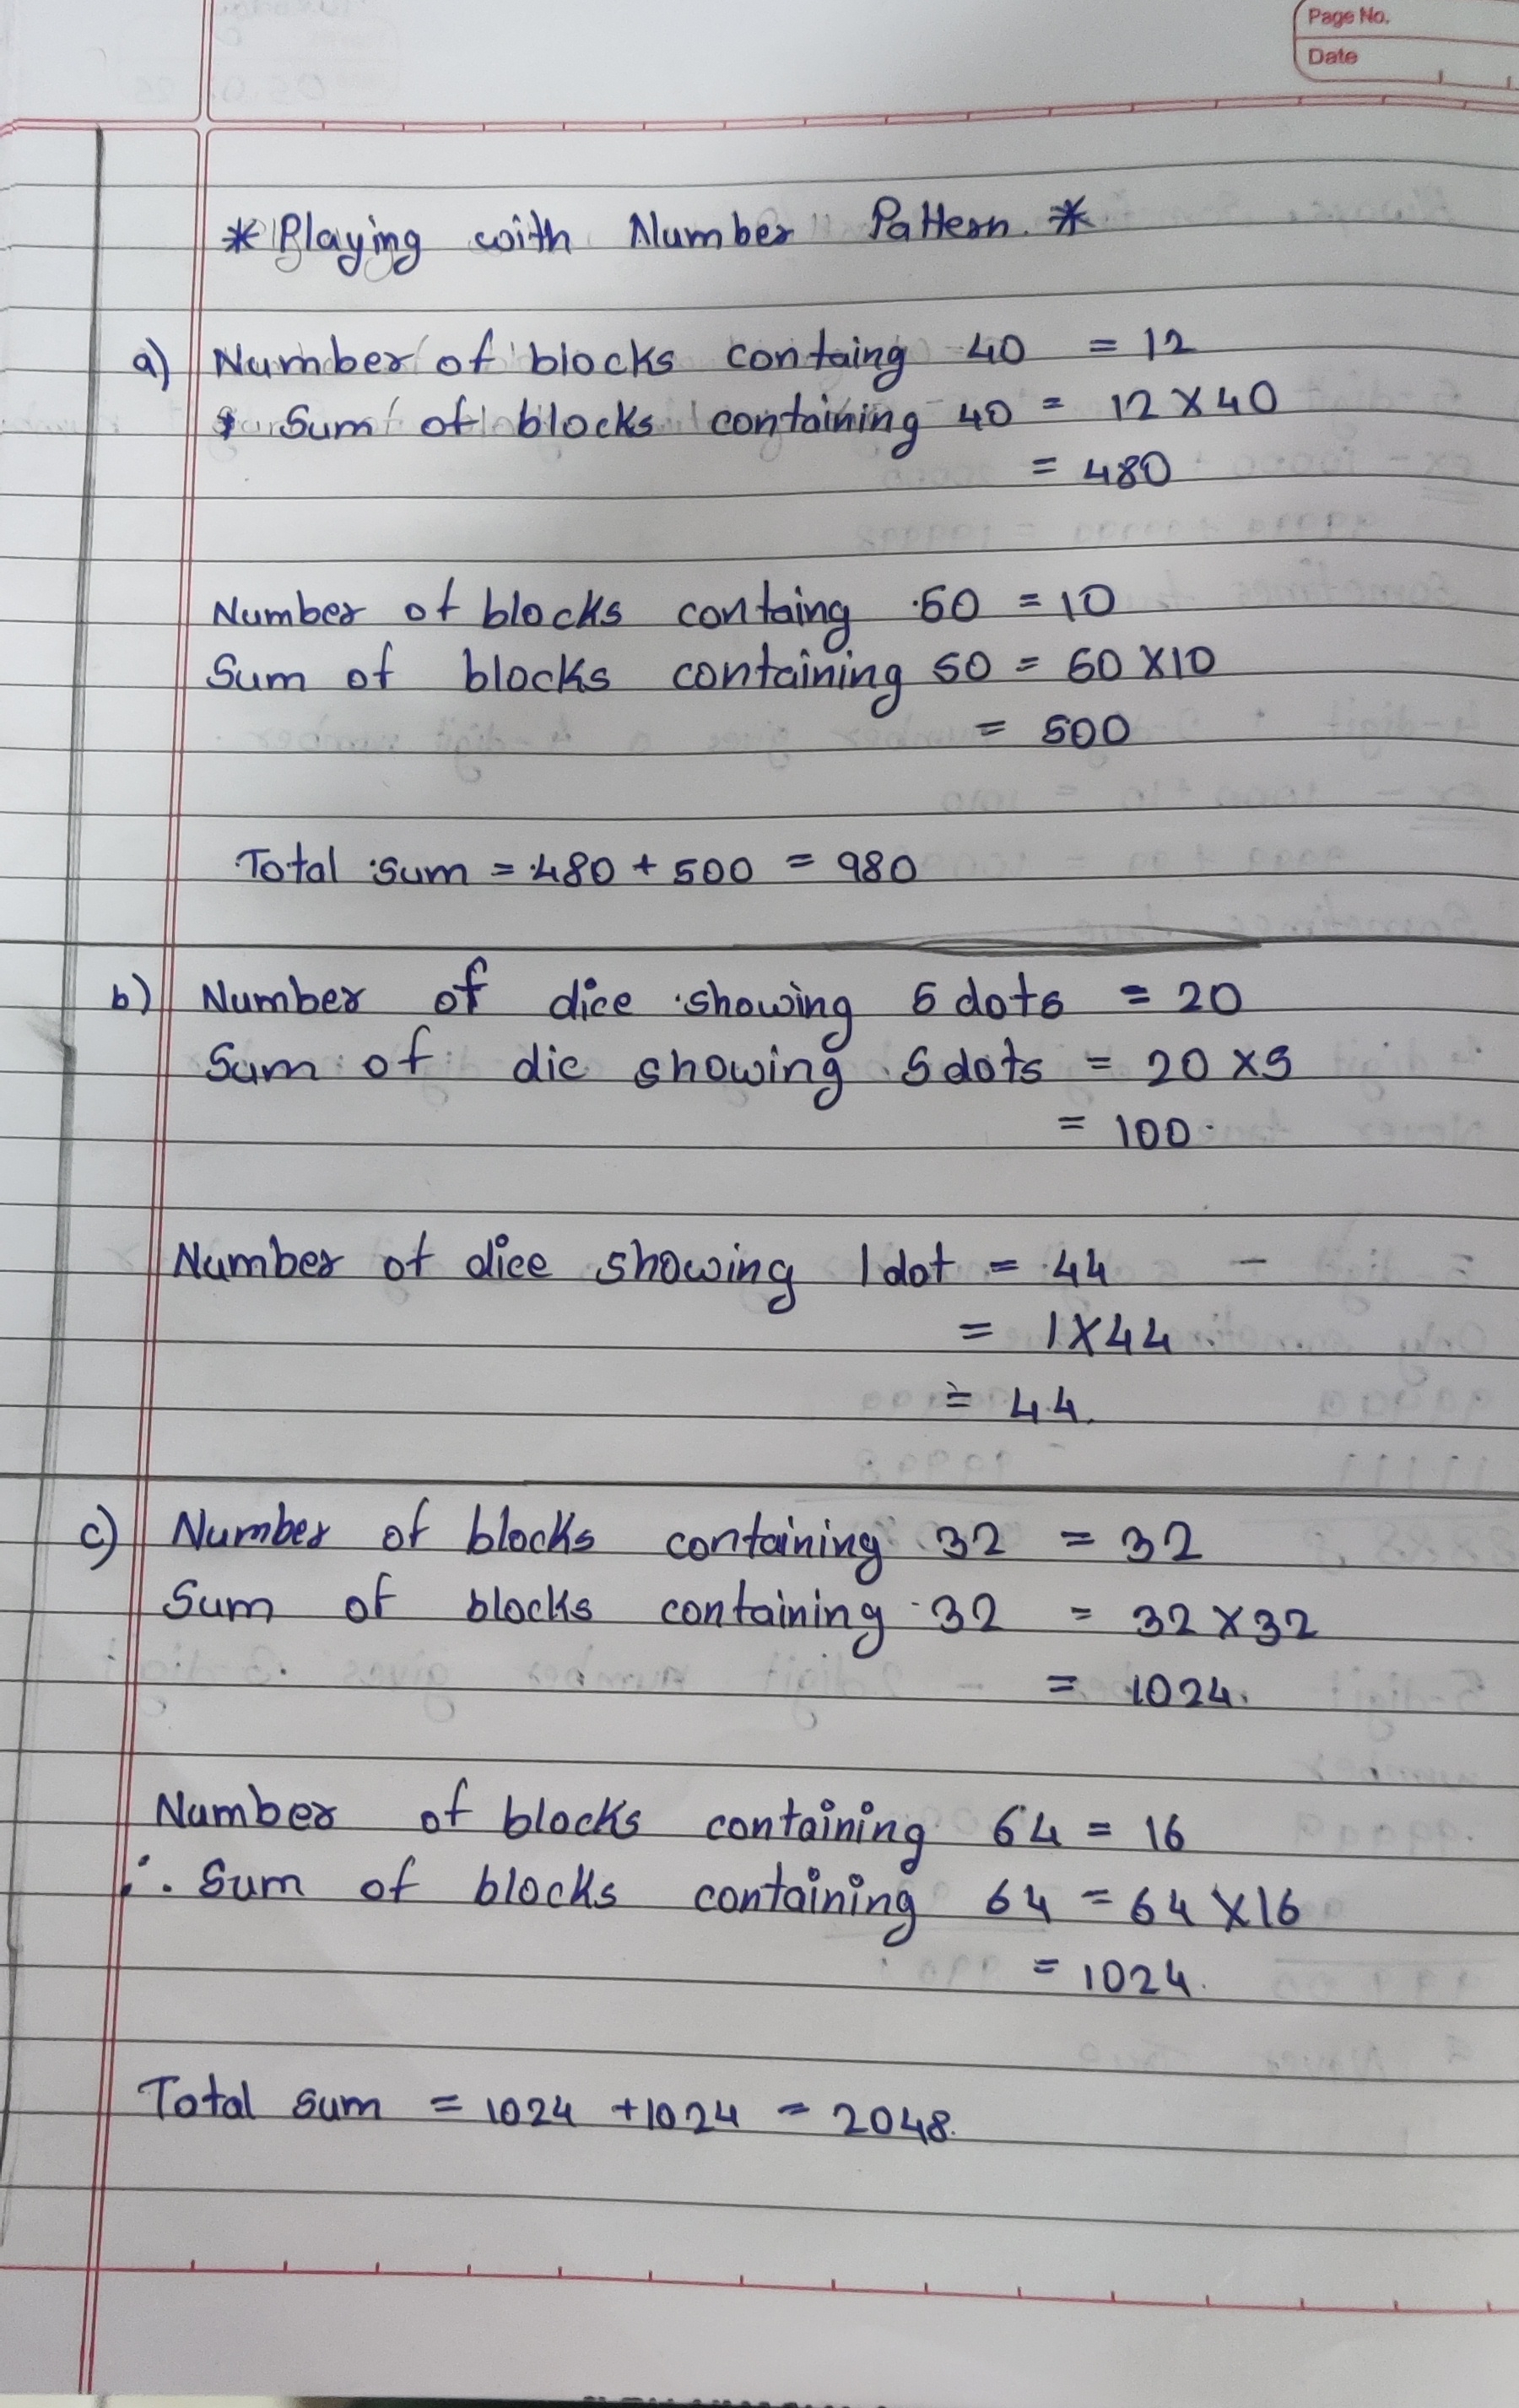 Page No.
Date
* Playing with Number Pattern. *
a) Number of blocks containg 40 = 12
Sum of blocks containing 40 = 12 X 40
= 480
Number of blocks containg 50 = 10
Sum of blocks containing 50 = 50 X 10
= 500
Total sum = 480 + 500 = 980
b) Number of dice showing 5 dots = 20
Sum of dic showing 5 dots = 20 X 5
= 100
Number of dice showing 1 dot = 44 -
= 1 X 44
= 44.
c) Number of blocks containing 32 = 32
Sum of blocks containing 32 = 32 X 32
= 1024.
Number of blocks containing 64 = 16
∴ Sum of blocks containing 64 = 64 X 16
= 1024.
Total sum = 1024 + 1024 = 2048.